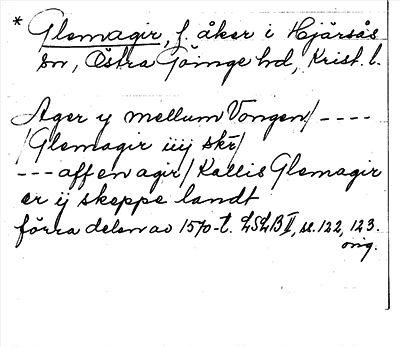 * Glemagir, f. åker i Hjärsås
sn, Östra Göinge hd, Krist. l.
Ager y mellum Vongen/ ----
/Glemagir iiij skr/
--- aff en agir/ Kallis Glemagir
er ij skeppe landt
förra delen av 1570-t. LSLB II, s. 122, 123.
orig.